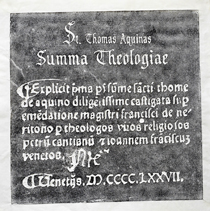 St. Thomas Aquinas
Summa Theologiae
Explicit pma ps sõme sãcti thome
de aquino diligẽtissime castigata sup
emẽdatione magistri francisci de ne
ritono ⁊ theologos viros religiosos
petrũ cantianũ ⁊ ioannem frãciscũ
venetos.
Venetijs. M.CCCC.LXXVII.